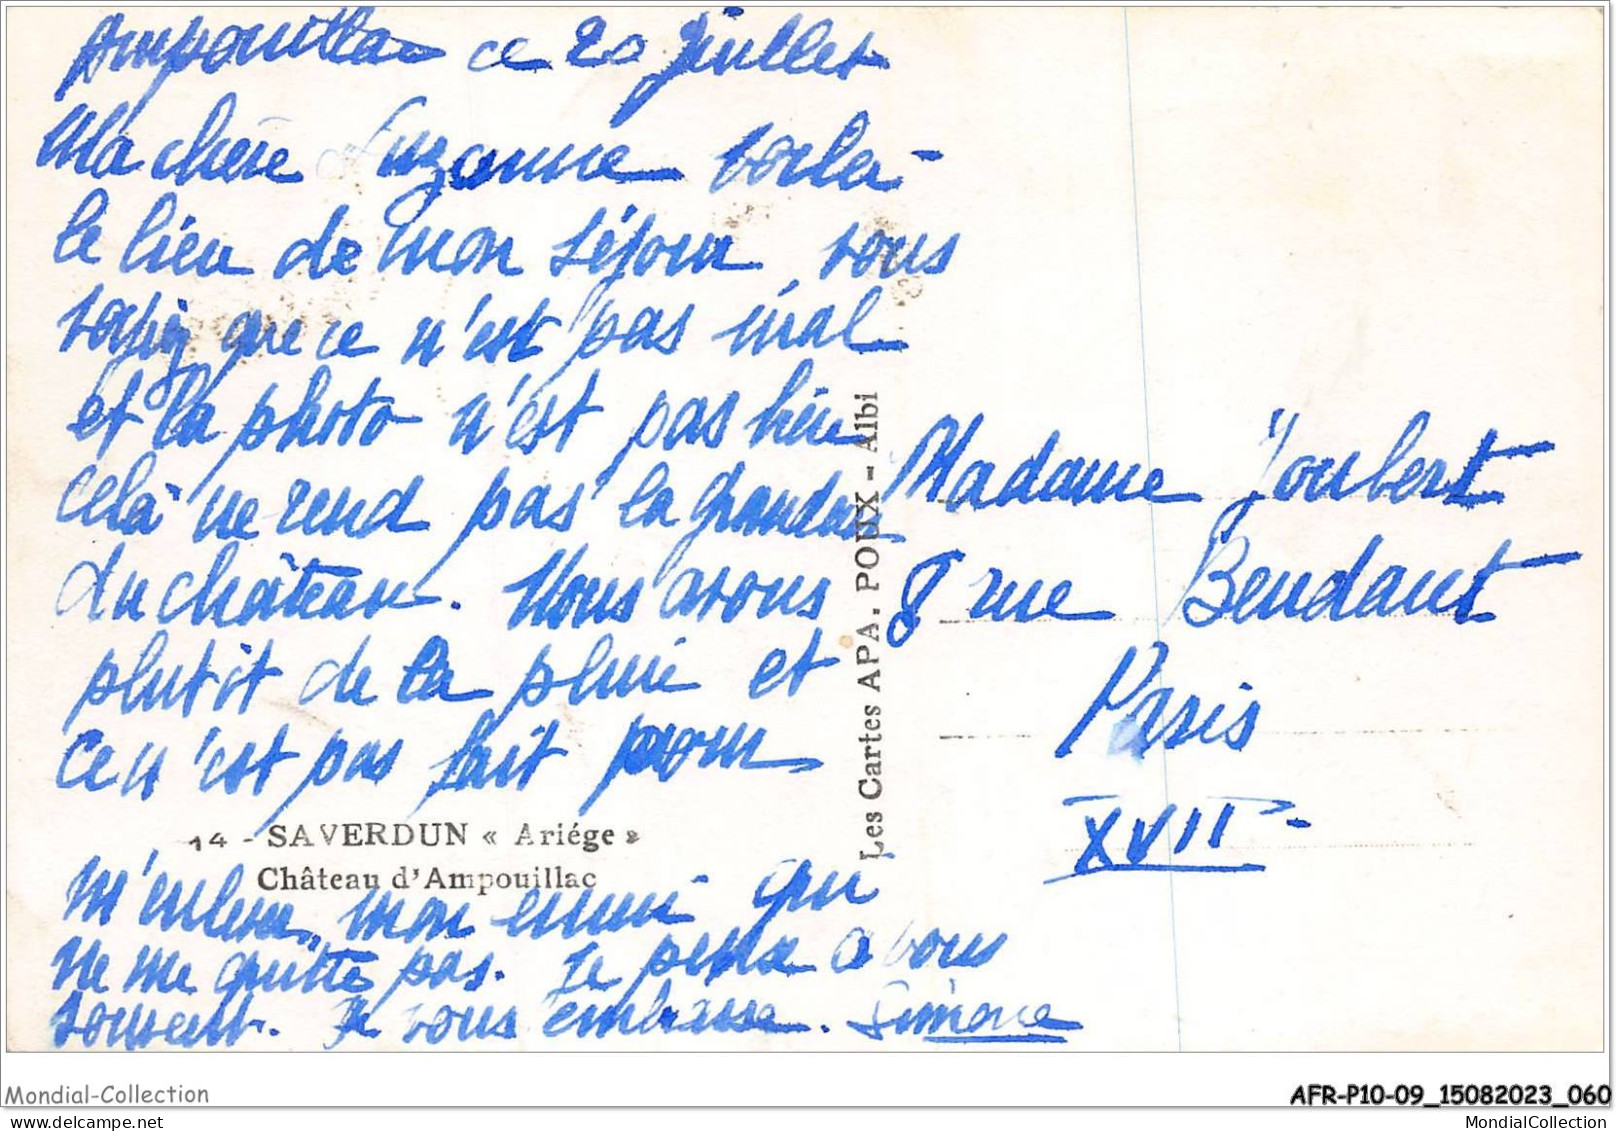 Ampouillac ce 20 Juillet
Ma chère Suzanne voilà
le lieu de mon séjour, vous
voyez que ce n'est pas mal
et la photo n'est pas bien
celà ne rend pas la grandeur
du château. Nous avons
plutôt de la pluie et
ce n'est pas fait pour
14 - SAVERDUN « Ariége »
Château d'Ampouillac
m'enlever mon ennui qui
ne me quitte pas. Je pense à vous
souvent. Je vous embrasse. Simone
Les Cartes APA. POUX - Albi
Madame Joubert
8 rue Beudant
Paris
XVII
Mondial-Collection
AFR-P10-09_15082023_060
MondialCollection